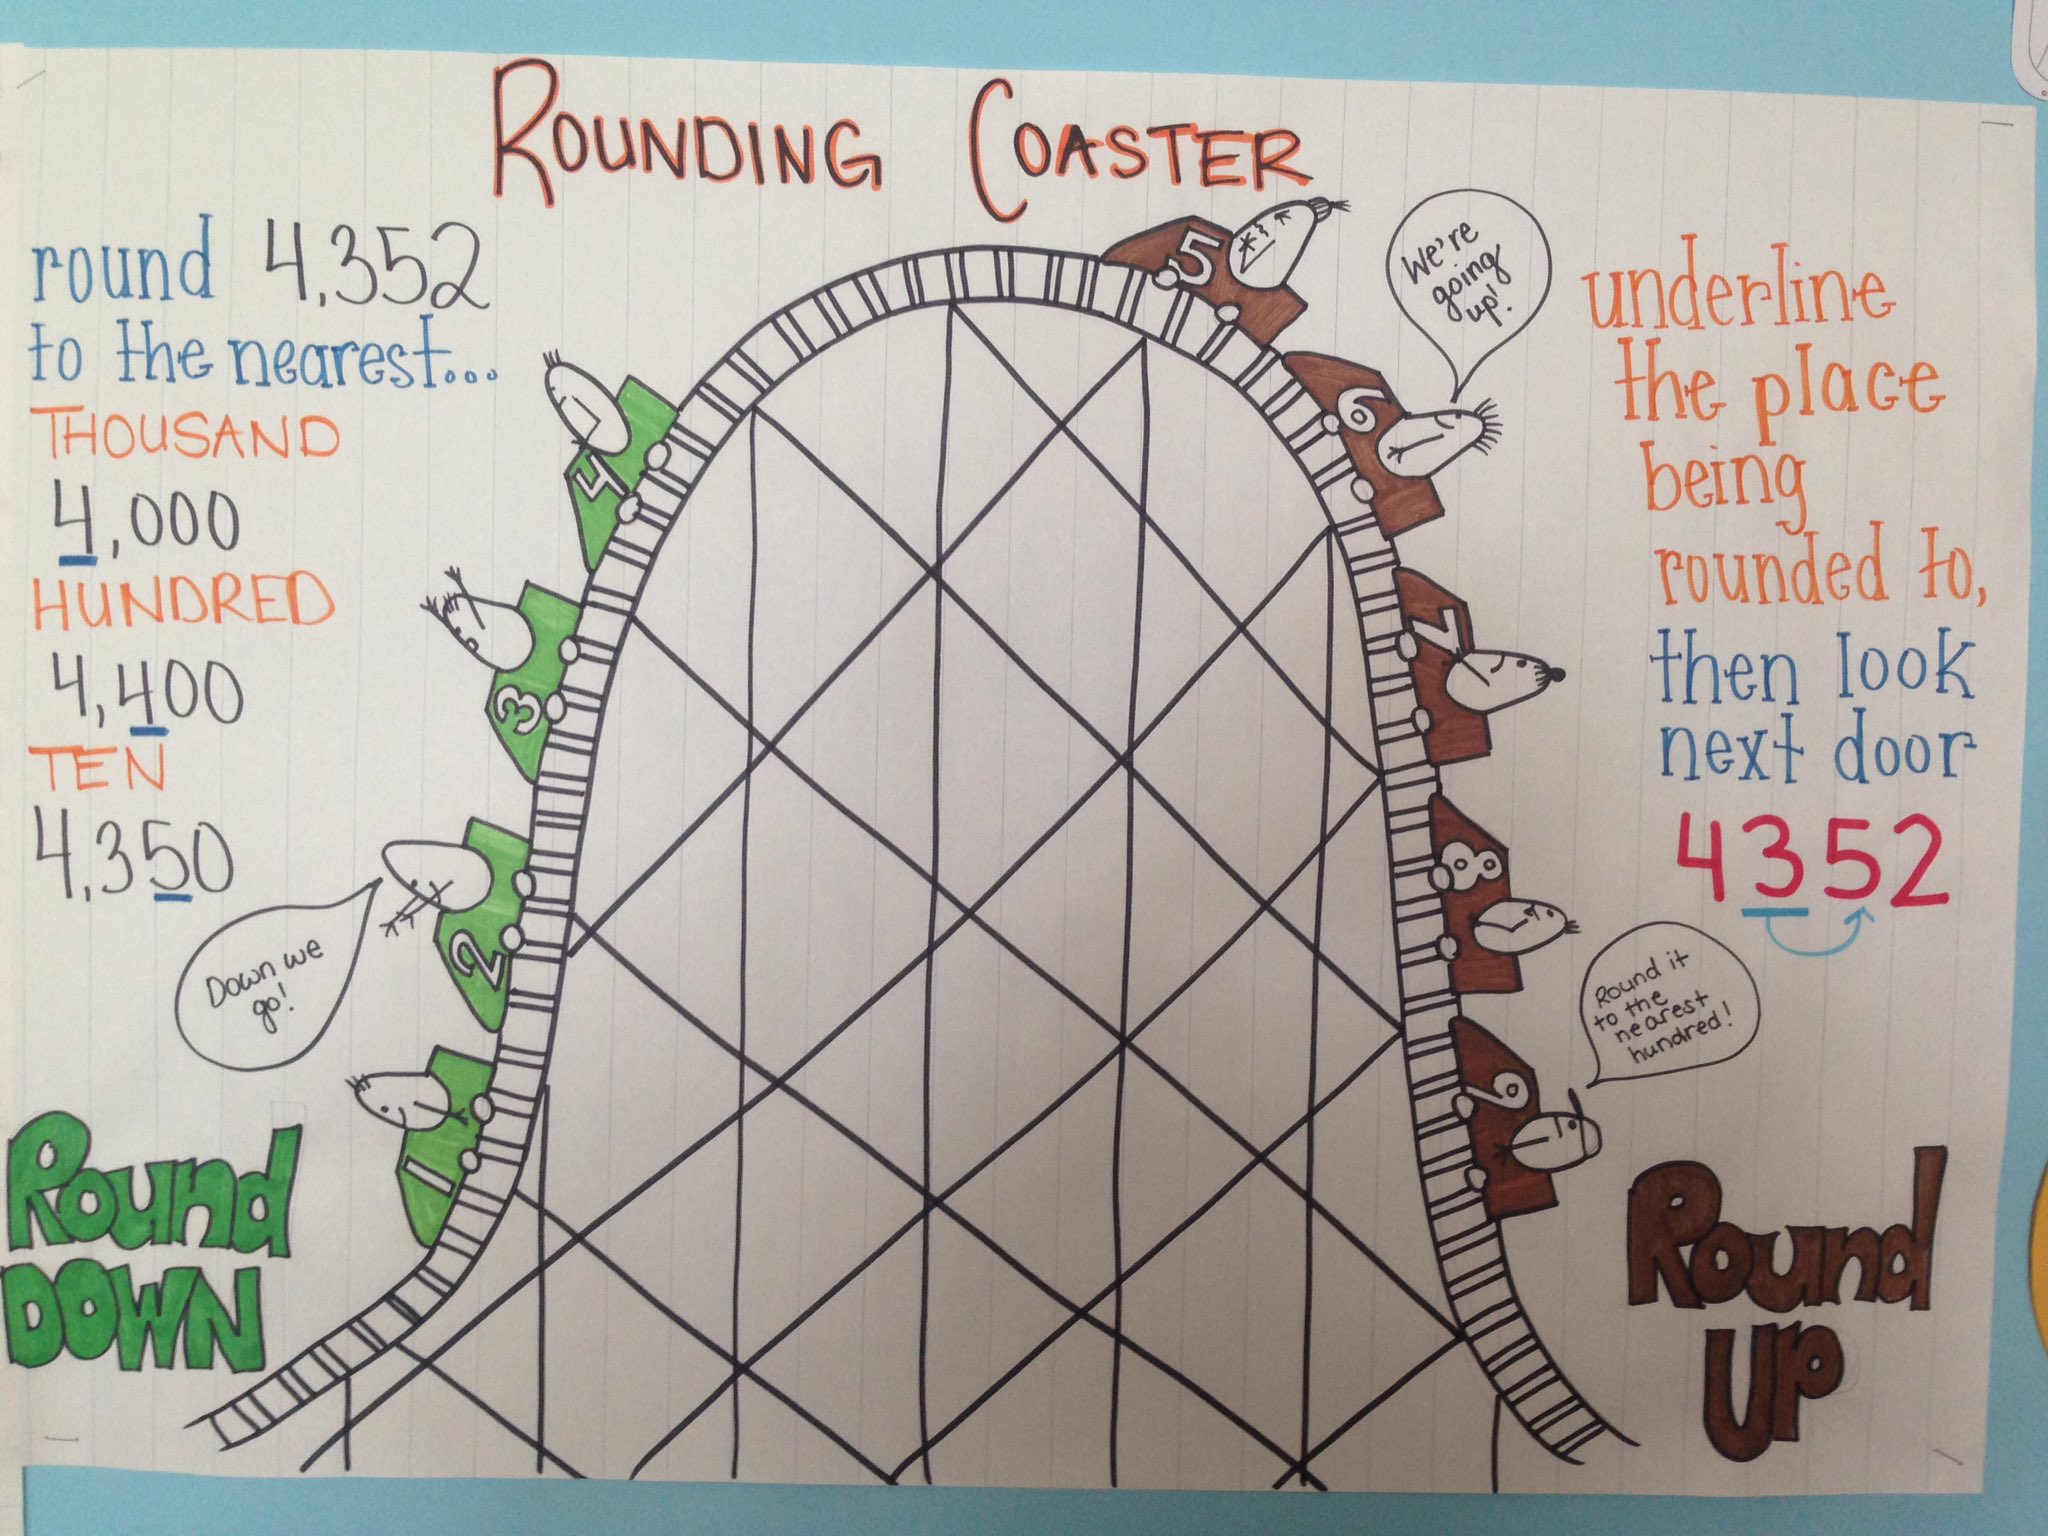 ROUNDING COASTER
round 4,352
to the nearest...
THOUSAND
4,000
HUNDRED
4,400
TEN
4,350
Down we
go!
Round
DOWN
1
2
3
4
5
6
7
8
9
We're
going
up!
underline
the place
being
rounded to,
then look
next door
4352
Round it
to the
nearest
hundred!
Round
UP